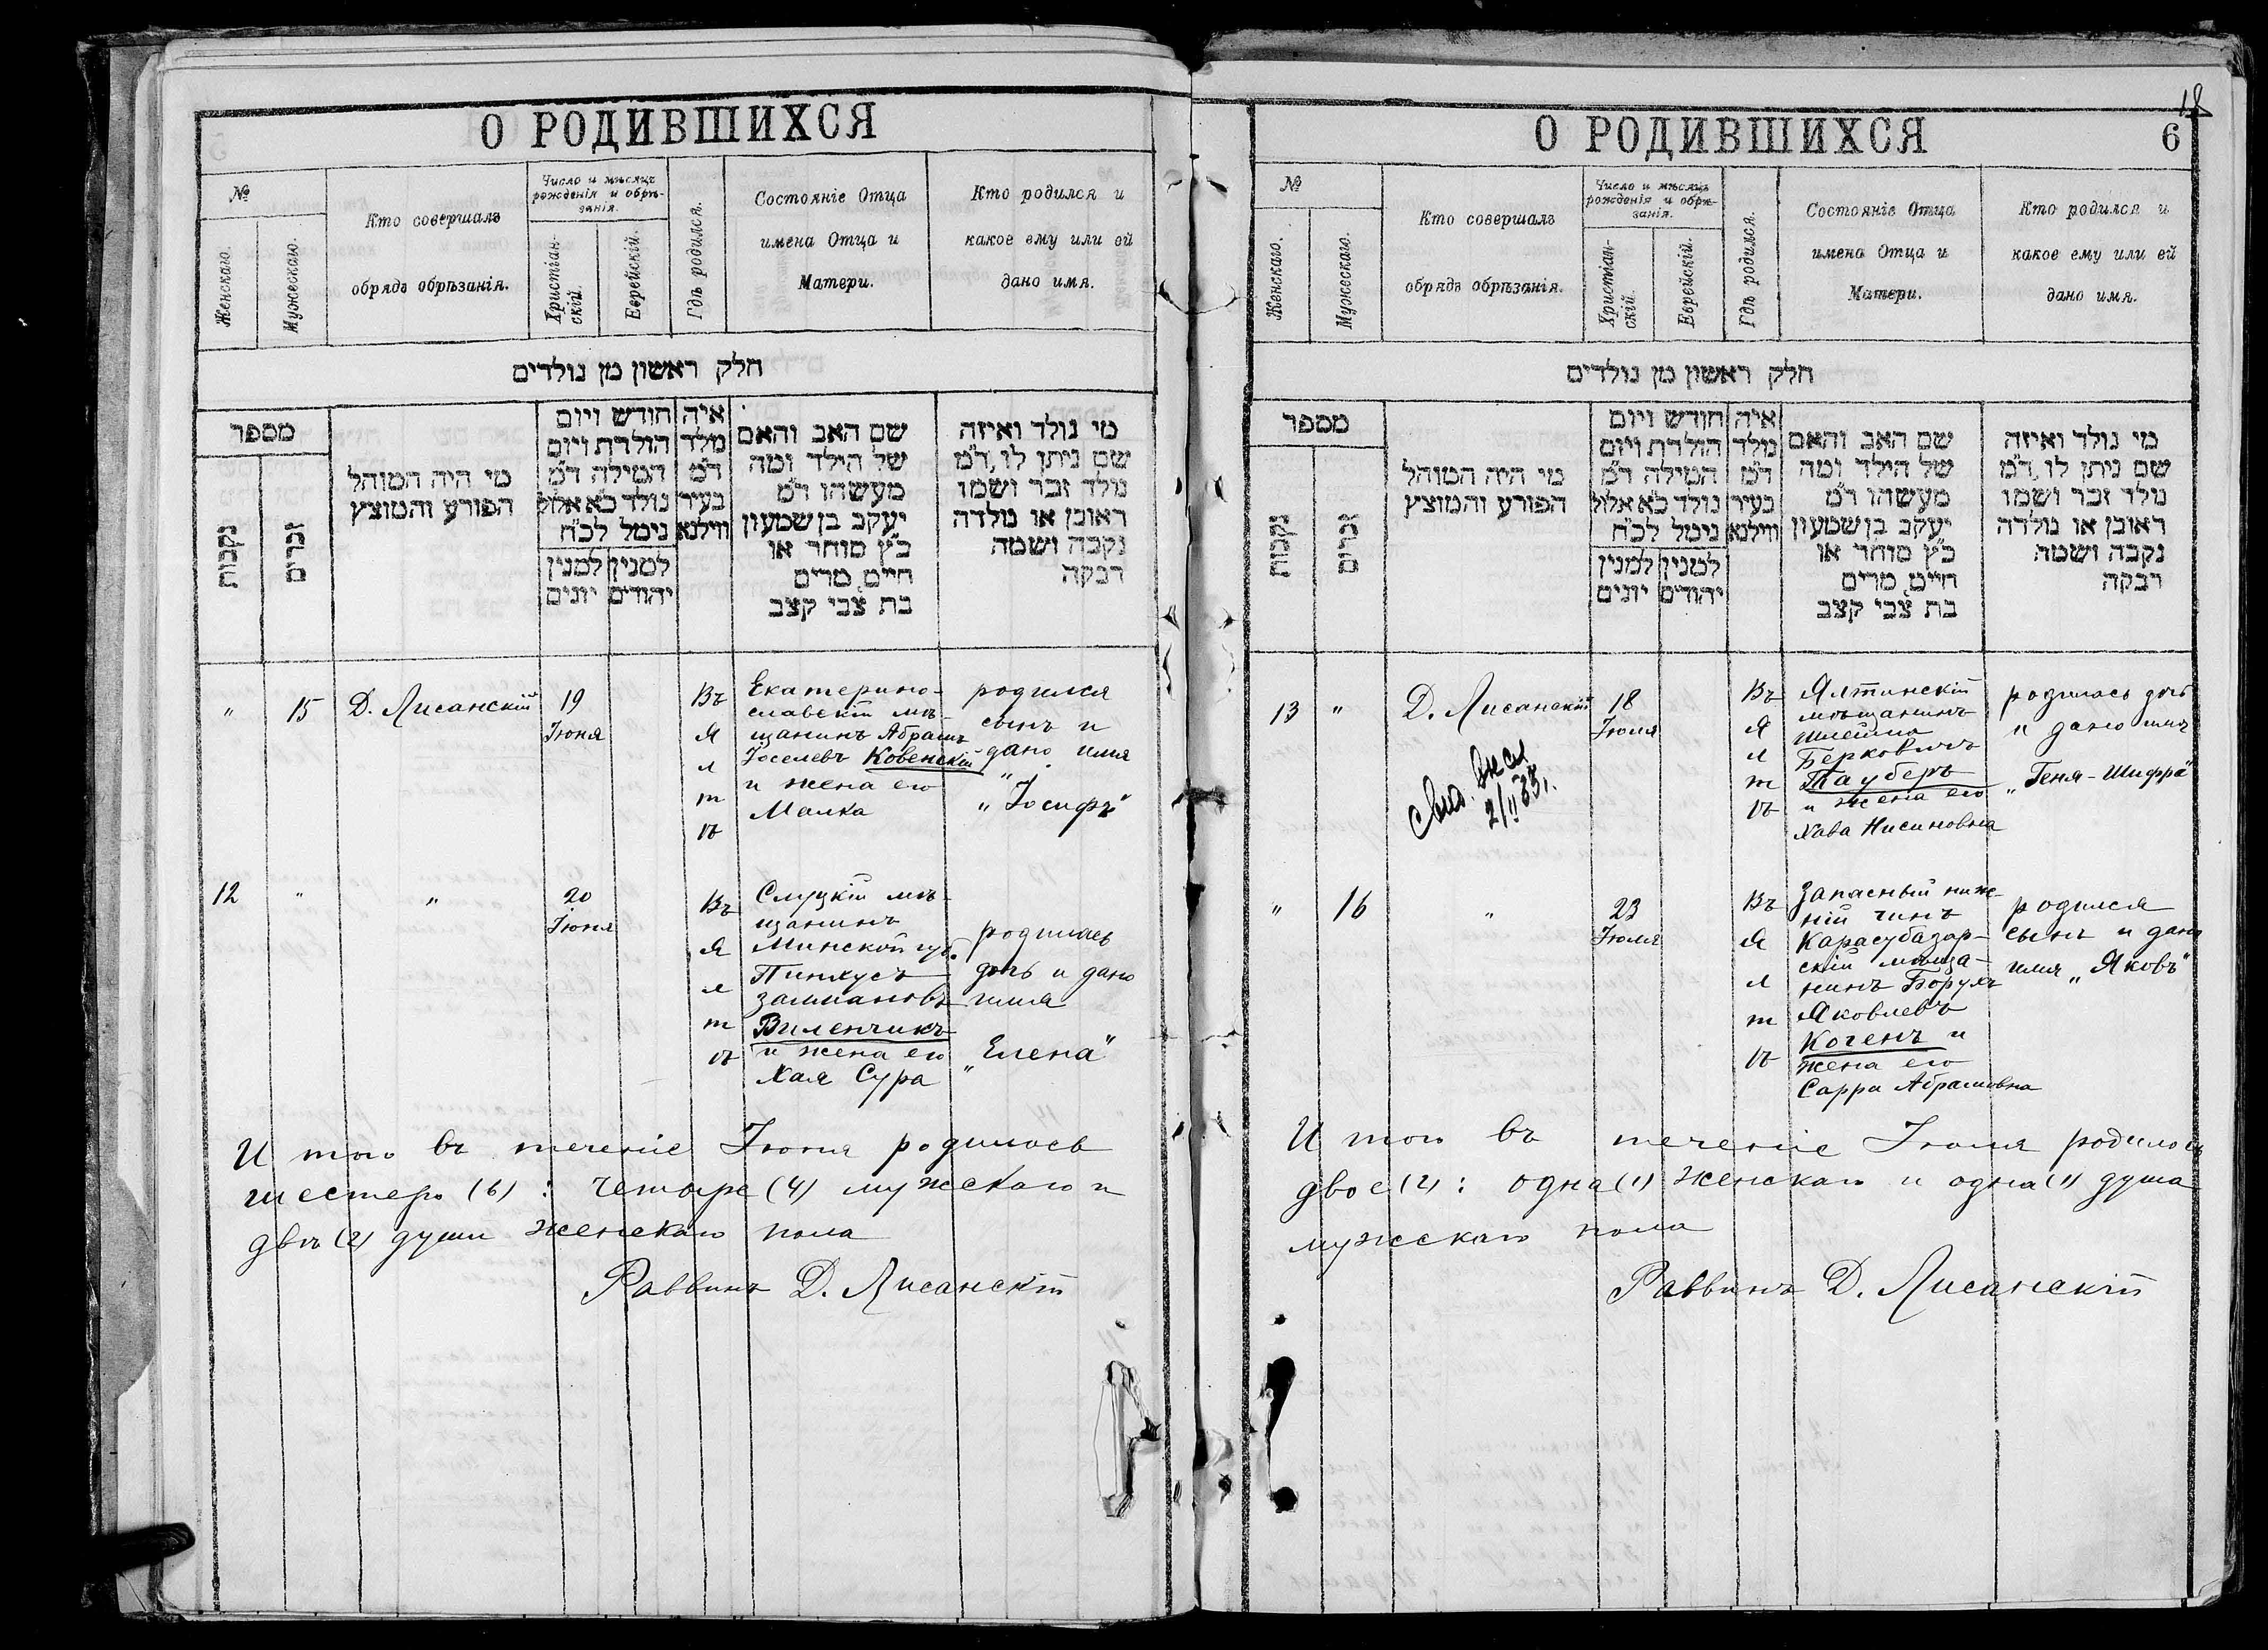 О РОДИВШИХСЯ
№
Женскаго.
Мужескаго.
Кто совершалъ
обрядъ обрѣзанія.
Число и мѣсяцъ
рожденія и обрѣ-
занія.
Христіан-
скій.
Еврейскій.
Гдѣ родился.
Состояніе Отца
имена Отца и
Матери.
Кто родился и
какое ему или ей
дано имя.
חלק ראשון מן נולדים
מספר
נקבות
זכרים
מי היה המוהל
הפורע והמוצץ
חודש ויום
הולדת ויום
המילה ד״מ
נולד כ״א אלול
נימל לכ״ח
למנין למנין
יהודים יונים
איה
מלד
ד״מ
בעיר
ווילנא
שם האב והאם
של הילד ומה
מעשהו ד״מ
יעקב בן שמעון
כ״ץ סוחר או
חיים מרים
בת צבי קצב
מי נולד ואיזה
שם ניתן לו, ד״מ
נולד זכר ושמו
ראובן או נולדה
נקבה ושמה
רבקה
" 15 Д. Лисанскій
19
Іюня
Въ
Я
л
т
ѣ
Екатерино-
славскій мѣ-
щанинъ Абрамъ
Іоселевъ Ковенскій
и жена его
Малка
родился
сынъ и
дано имя
"Іосифъ"
12 " "
20
Іюня
Въ
Я
л
т
ѣ
Слуцкій мѣ-
щанинъ
Минской губ.
Пинхусъ
Залмановъ
Виленчикъ
и жена его
Хая Сура
родилась
дочь и дано
имя
"Елена"
Итого въ теченіе Іюня родилось
шестеро (6): четыре (4) мужескаго и
двѣ (2) души женскаго пола
Раввинъ Д. Лисанскій
18
О РОДИВШИХСЯ
6
№
Женскаго.
Мужескаго.
Кто совершалъ
обрядъ обрѣзанія.
Число и мѣсяцъ
рожденія и обрѣ-
занія.
Христіан-
скій.
Еврейскій.
Гдѣ родился.
Состояніе Отца
имена Отца и
Матери.
Кто родился и
какое ему или ей
дано имя.
חלק ראשון מן נולדים
מספר
נקבות
זכרים
מי היה המוהל
הפורע והמוצץ
חודש ויום
הולדת ויום
המילה ד״מ
נולד כ״א אלול
נימל לכ״ח
למנין למנין
יהודים יונים
איה
מלד
ד״מ
בעיר
ווילנא
שם האב והאם
של הילד ומה
מעשהו ד״מ
יעקב בן שמעון
כ״ץ סוחר או
חיים מרים
בת צבי קצב
מי נולד ואיזה
שם ניתן לו, ד״מ
נולד זכר ושמו
ראובן או נולדה
נקבה ושמה
רבקה
13 " Д. Лисанскій
18
Іюля
Въ
Я
л
т
ѣ
Ялтинскій
мѣщанинъ
Шлейма
Берковичъ
Тауберъ
и жена его
Хава Нисиновна
родилась дочь
и дано имя
"Геня-Шифра"
" 16 "
23
Іюля
Въ
Я
л
т
ѣ
Запасный ниж-
ній чинъ
Карасубазар-
скій мѣща-
нинъ Борухъ
Яковлевъ
Когенъ и
жена его
Сарра Абрамовна
родился
сынъ и дано
имя "Яковъ"
Итого въ теченіе Іюля родилось
двое (2): одна (1) женскаго и одна (1) душа
мужескаго пола
Раввинъ Д. Лисанскій